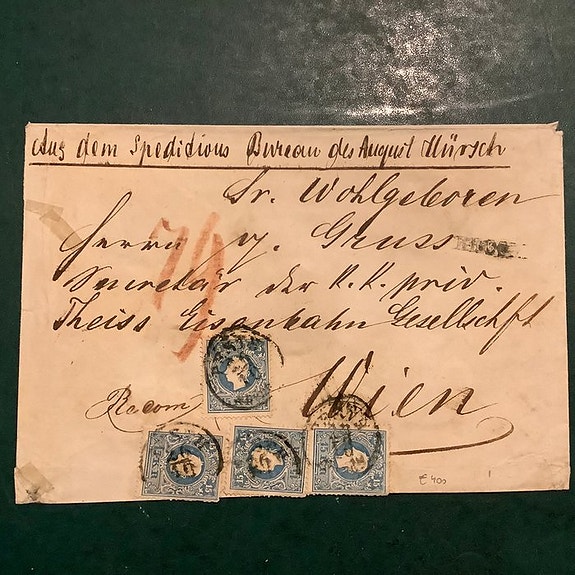 Aus dem Speditions Bureau des August Mürsch
Sr. Wohlgeboren
Herrn v. Gruss
Secretär der K. K. priv.
Theiss Eisenbahn Gesellschft
Wien
Recom
€ 400